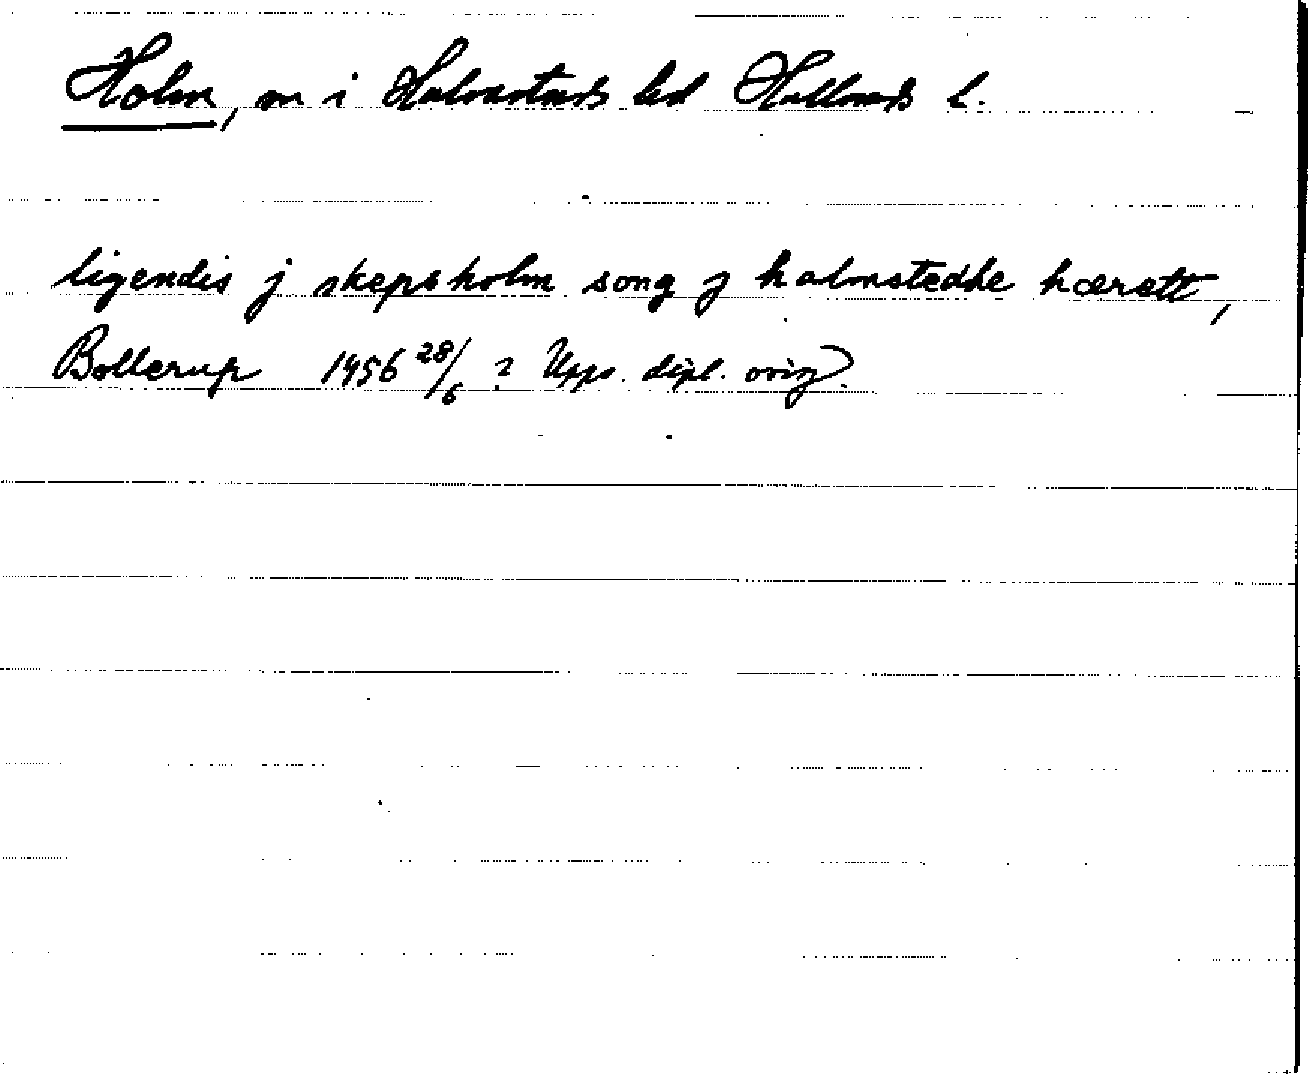 Holm, sn i Halmstads hd Hallands l.
ligendis j skepsholm song j halmstedhe hærett,
Bollerup 1456 28/6 ? Upps. dipl. orig.